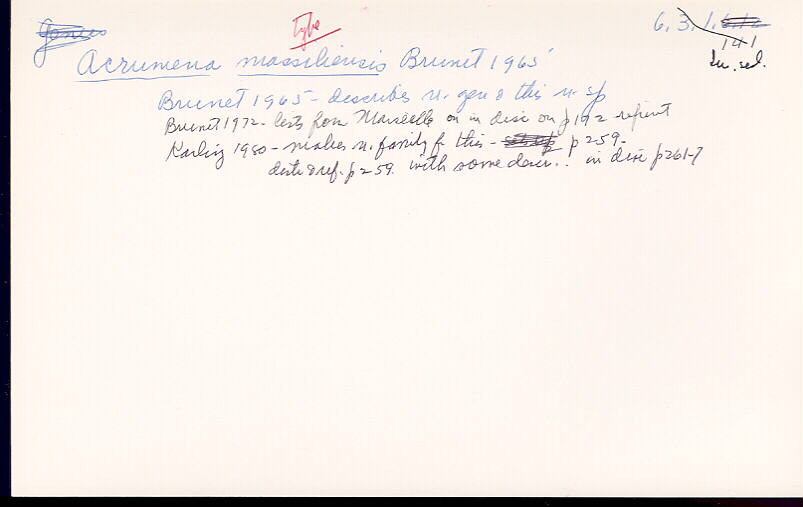 Type
6. 3. 1.
141
Acrumena massiliensis Brunet 1965
Brunet 1965 - describes n. gen & this n. sp
Brunet 1972 - lists from Marseille on in disc on p 172 reprint
Karling 1980 - makes n. family for this - p 259 -
distr & ref. p 259. with some descr.. in disc p 261-7